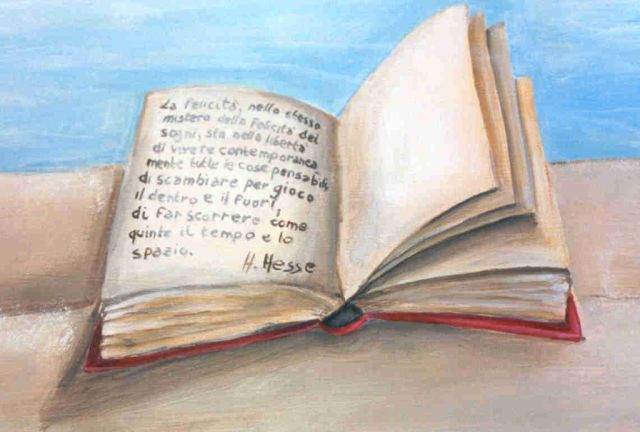 La felicità, nello stesso
mistero della felicità dei
sogni, sta nella libertà
di vivere contemporanea
mente tutte le cose pensabili,
di scambiare per gioco
il dentro e il fuori,
di far scorrere come
quinte il tempo e lo
spazio.
H. Hesse